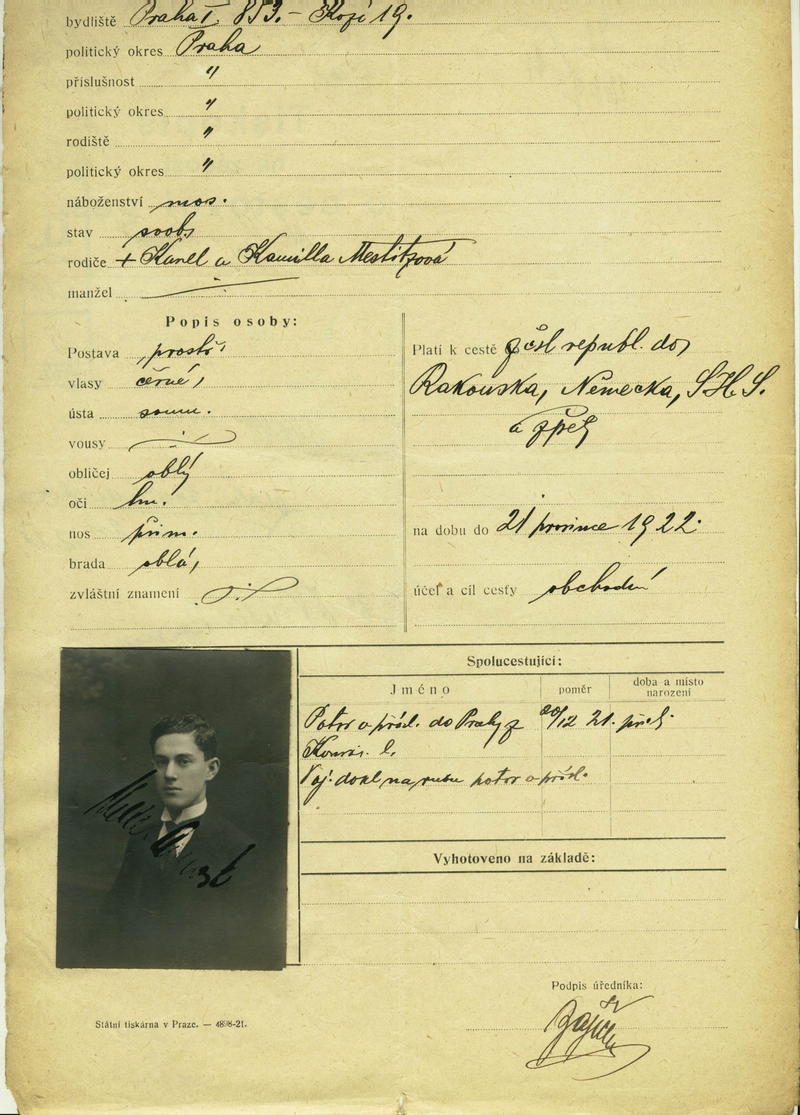 bydliště Praha I. 853. – Kozí 19.
politický okres Praha
příslušnost "
politický okres "
rodiště "
politický okres "
náboženství mos.
stav svob.
rodiče + Karel a Kamilla Mestitzová
manžel
Popis osoby:
Postava prostř.
vlasy černé,
ústa soum.
vousy
obličej oblý
oči hn.
nos přim.
brada oblá,
zvláštní znamení
Platí k cestě z čsl republ. do
Rakouska, Německa, S.H.S.
a zpět
na dobu do 21 prosince 1922.
účel a cíl cesty obchodní
Spolucestující:
Jméno poměr doba a místo narození
Potvr o přísl. do Prahy z 20/12 21. při
Voj. dokl na rubu potvr o přísl.
Vyhotoveno na základě:
Podpis úředníka:
Státní tiskárna v Praze. — 4898-21.